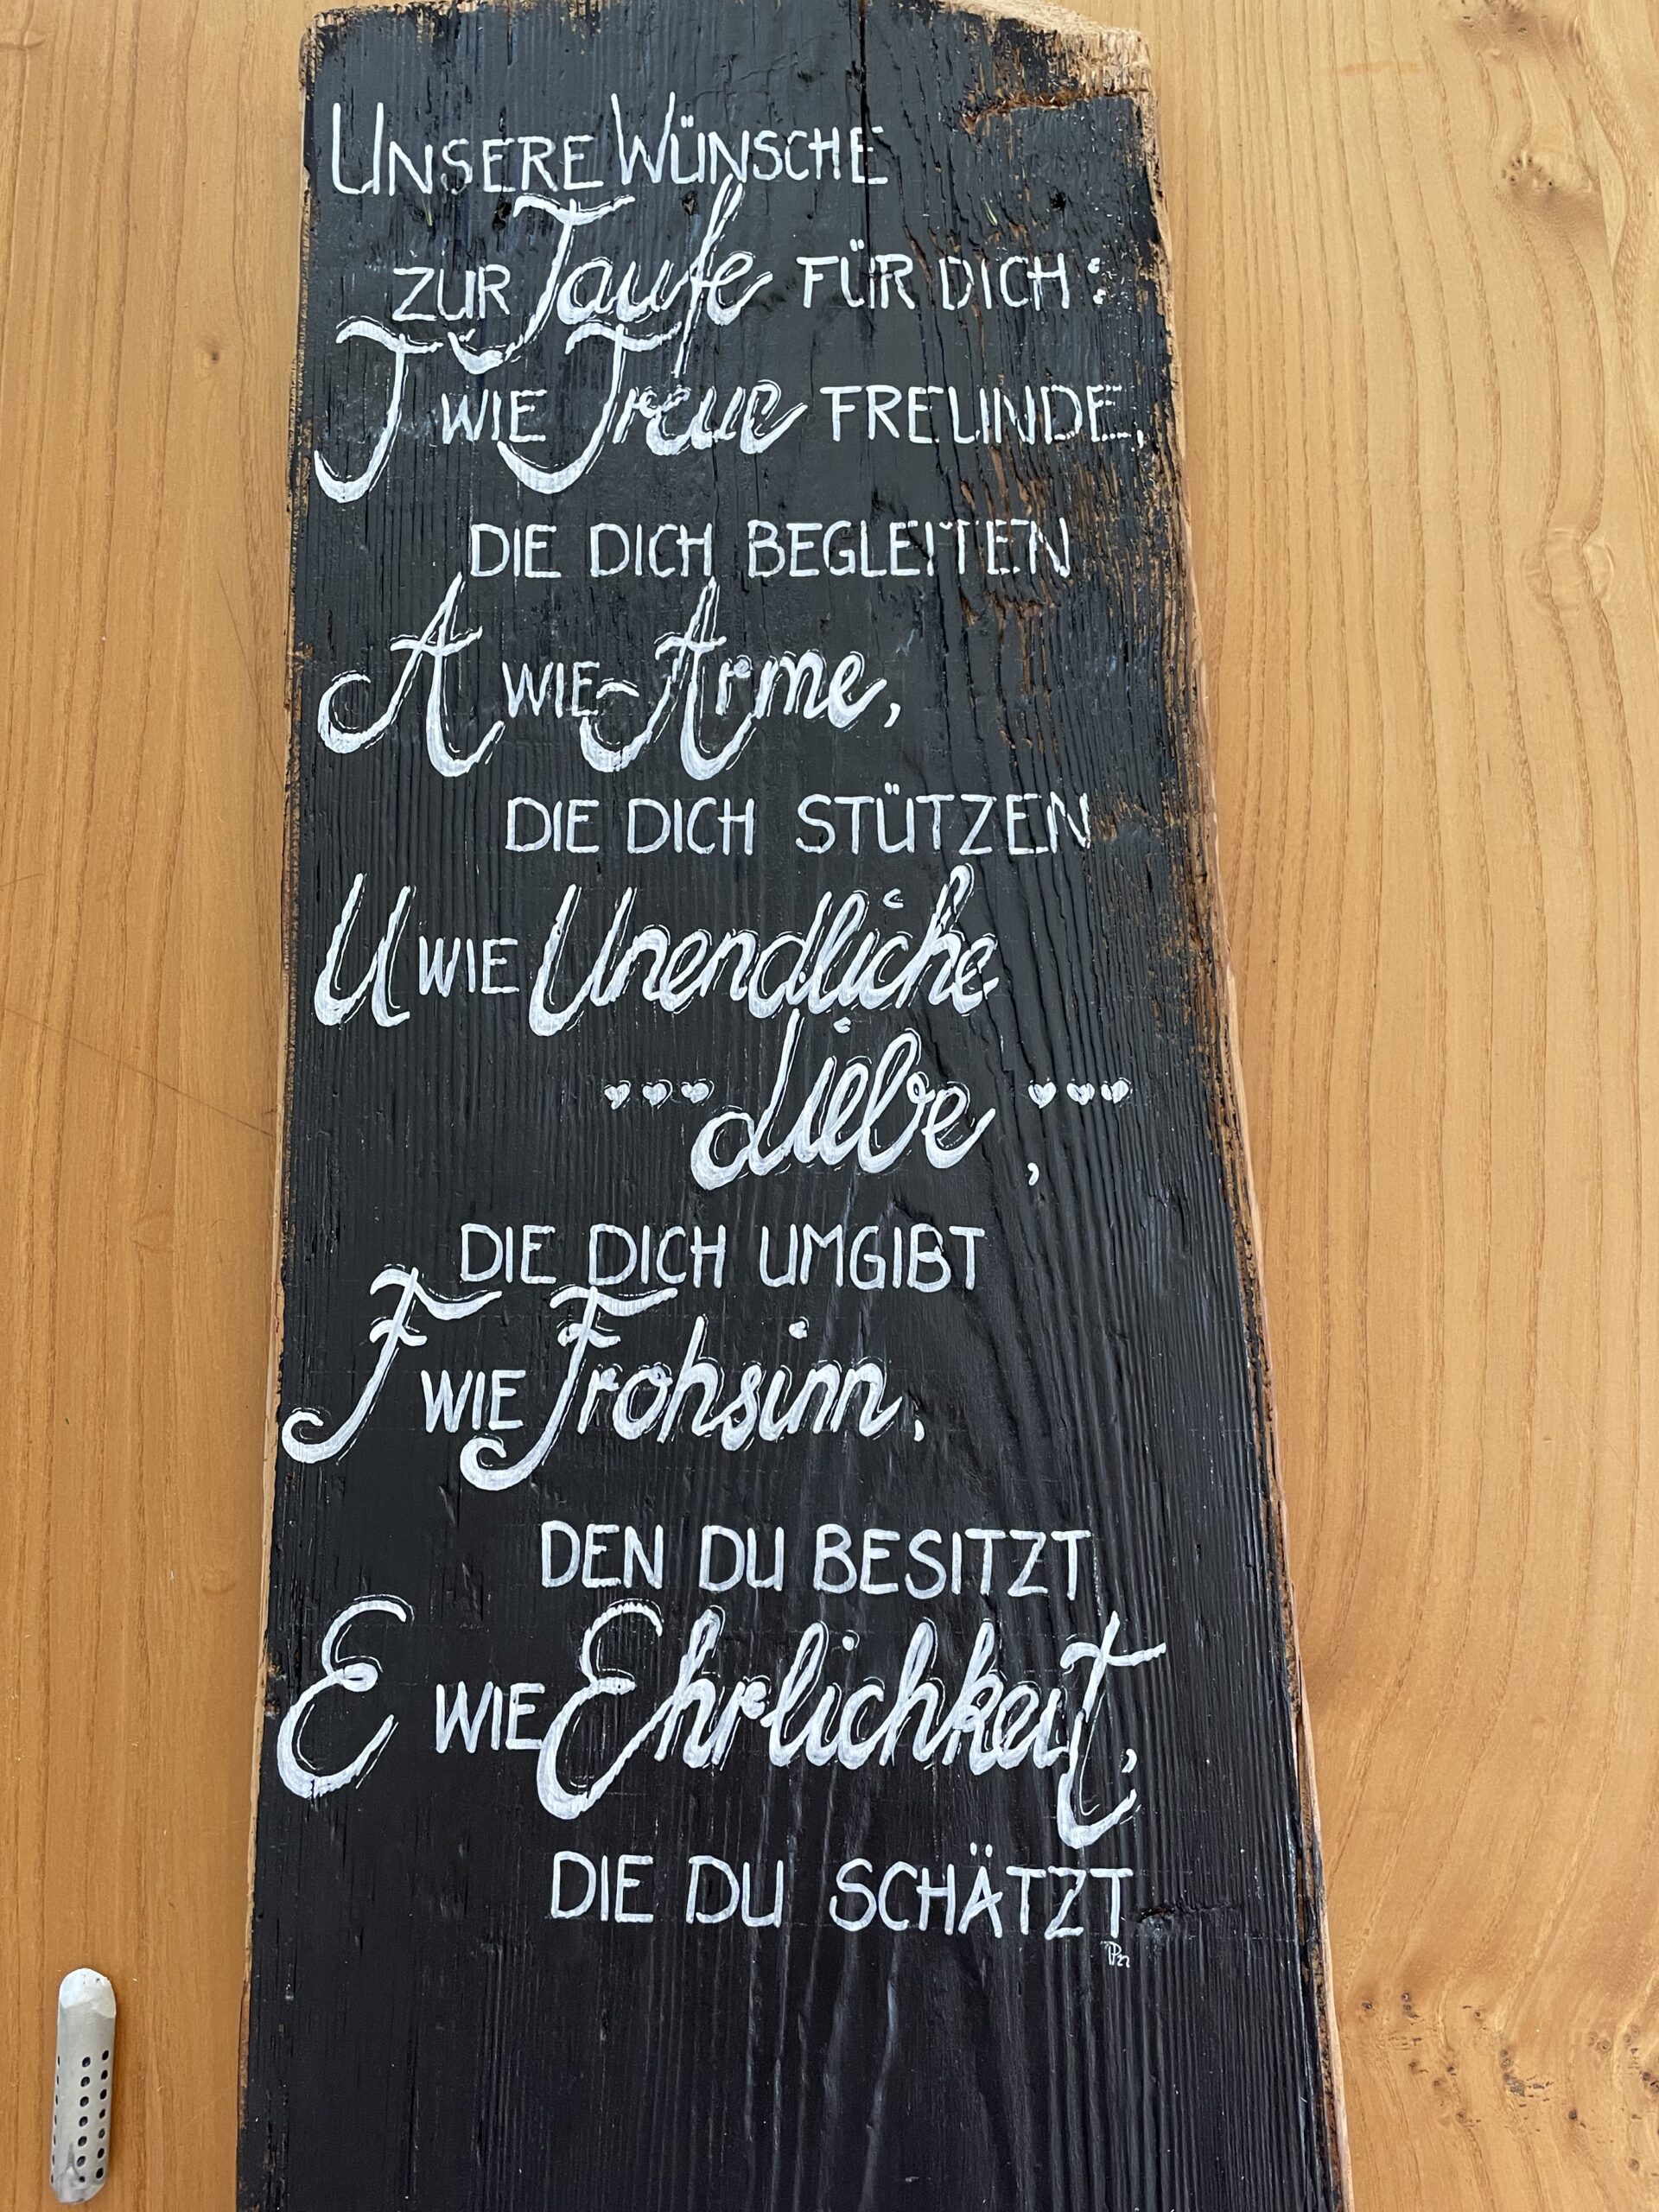 UNSERE WÜNSCHE
ZUR Taufe FÜR DICH:
T WIE Treue FREUNDE,
DIE DICH BEGLEITEN
A WIE Arme,
DIE DICH STÜTZEN
U WIE Unendliche
Liebe,
DIE DICH UMGIBT
F WIE Frohsinn,
DEN DU BESITZT
E WIE Ehrlichkeit,
DIE DU SCHÄTZT